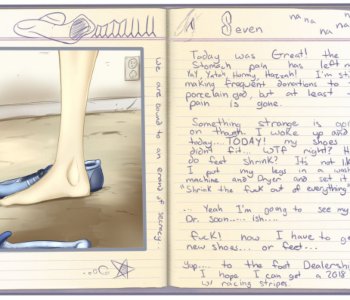 We are bound to an errand of secrecy.
Do..
Seven
na na na na na
na
Today was Great! the
Stomach pain has left m
Yay, Yatoh, Horray, Hazzah! I'm sti
making frequent donations to
porcelain god, but at least
pain is gone.
Something strange is
on though. I woke up and
today.... TODAY! my shoes
didnt fit... WTF right? H
do feet shrink? Its not lik
I put my legs in a wash
machine and Dryer and set it
"Shrink the fuck out of everything"
... Yeah I'm going to see my
Dr. soon.... ish....
fuck! now I have to g
new shoes... or feet...
Yup.... to the foot Dealership
I hope I can get a 2018
w/ racing stripes